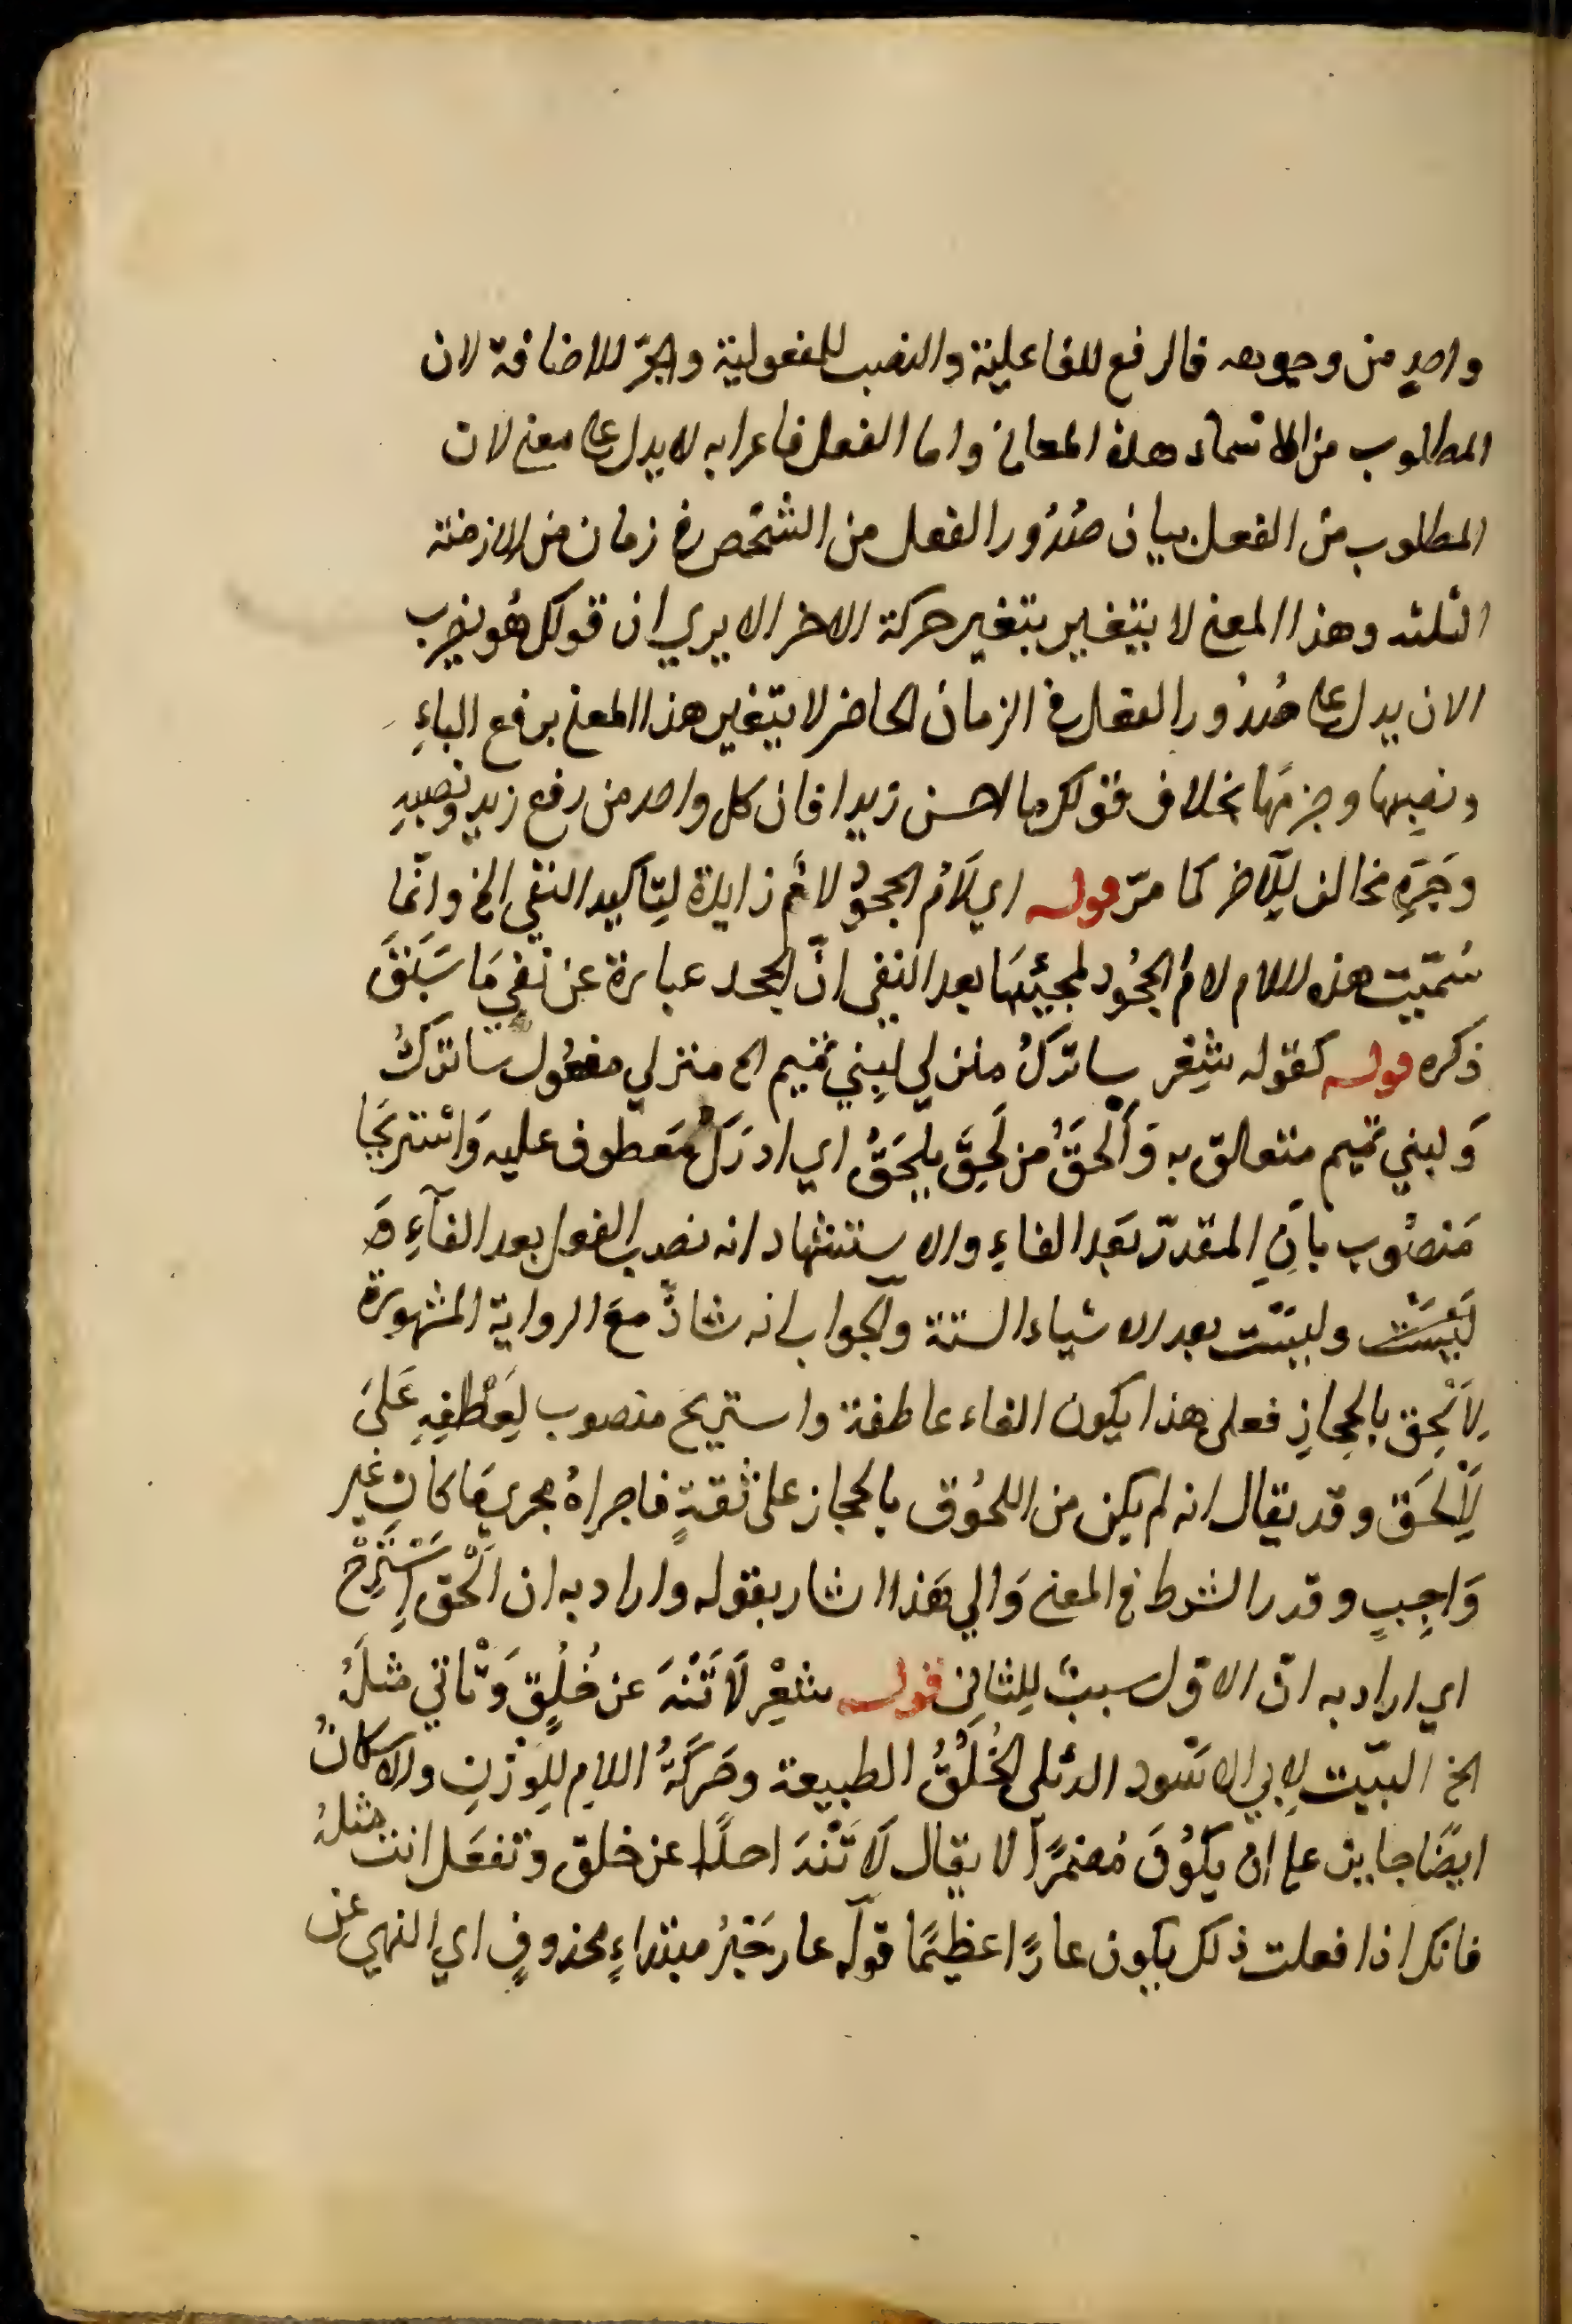 واحدٍ من وجوهه فالرفع للفاعلية والنصب للمفعولية والجرّ للاضافة لان
المطلوب من الاسماء هذه المعاني واما الفعل فاعرابه لا يدل على معنى لان
المطلوب من الفعل بيان صُدُور الفعل من الشخص في زمان من الازمنة
الثلثه وهذا المعنى لا يتغير بتغير حركة الاخر الا يري ان قولك هُو يضرب
الان يدل على صُدُور الفعل في الزمان الحاضر لا يتغير هذا المعنى برفع الباءِ
ونصبِها وجزمِها بخلاف قولك ما احسن زيدا فان كل واحد من رفع زيدٍ ونصبهِ
وجَرِّهِ مخالف لِلآخر كما مرّ قوله اي لَامُ الجحودِ لامٌ زايدة لِتاكيد النفي الخ وانّما
سُمّيت هذه اللام لامُ الجحُود لمجيئِهَا بعد النفي انّ الجحد عبارة عن نَفِي مَا سَبَقَ
ذكره قوله كقوله شِعْر ساترَكُ منزلي لِبني تميم الخ منزلي مفعُول ساترَكُ
وَلبني تميم متعلق به وَاَلْحَقَُ من لَحِقَ يلحَقُ اي ادرَكَ مَعطوف عليه وَاسْتريحَا
مَنصُوب بِاَنِ المقدرّ بَعد الفاءِ والاستشهاد انه نصب الفعل بعد الفآءِ وَ
لَيْسَتْ وليسَت بعد الاشياء الستة والجواب انه شاذّ معَ الرواية المشهورة
لِاَلْحق بالحِجازِ فعلى هذا يكون الفاء عاطفة واستريح منصوب لِعَطْفِهِ عَلىَ
لِاَلْحَق وقد يقال انه لم يكن من اللحُوق بالحجاز على ثقةٍ فاجراهُ مجرى مَا كان غير
وَاجِبٍ وقدر الشرط في المعنى وَالي هَذا اشار بقوله واراد به ان اَلْحق اِسَتَرِحْ
اي اراد به انّ الاوّل سببٌ لِلثاني قوله شِعْر لَا تَنْهَ عن خُلُقٍ وَتْاتي مثلَهُ
الخ البيت لِابي الاسْود الدئلى الخُلُقُ الطبيعة وحَرَكَةُ اللامِ لِلوَزنِ والاسكانُ
ايضًا جايز على ان يَكُونَ مُضمَرًا لا يقال لَا تَنْهَ احدًا عن خلق وتفعَل انت مثلهُ
فانك اذا فعلت ذلك يكون عارًا عظيمًا قوله عار خَبرُ مبتداءٍ محذوفٍ اي النهي عن